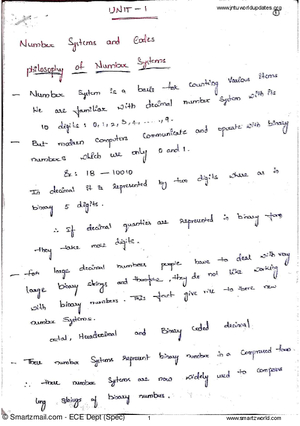 www.jntuworldupdates.org
UNIT - 1
Number Systems and Codes
philosophy of Number Systems
- Number System is a basis for counting Various Items
We are familiar with decimal number System with its
10 digits : 0, 1, 2, 3, 4, ...., 9.
- But modern computers communicate and operate with binary
numbers which use only 0 and 1.
Ex : 18 - 10010
In decimal It is represented by two digits where as in
binary 5 digits.
∴ If decimal quantities are represented in binary form
they take more digits.
- For large decimal numbers people have to deal with very
large binary strings and therefore, they do not like working
with binary numbers. This fact give rise to three new
number Systems.
octal, Hexadecimal and Binary coded decimal
- These number Systems represent binary number in a Compressed form
∴ these number Systems are now widely used to compress
long strings of binary numbers.
Smartzmail.com - ECE Dept (Spec)
1
www.smartzworld.com